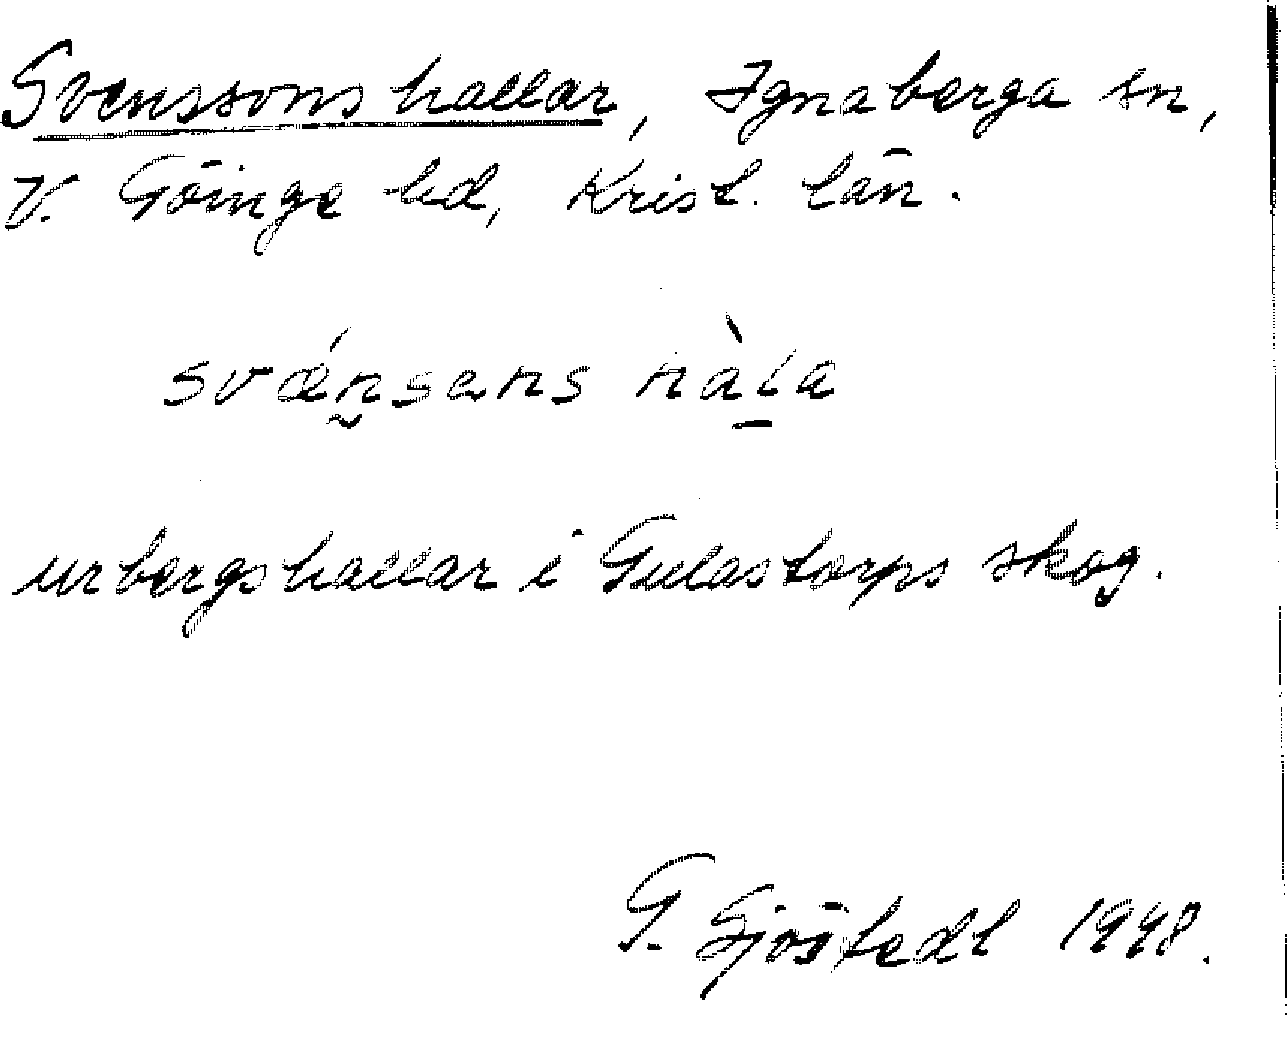 Svenssons hallar, Ignaberga sn,
V. Göinge hd, Krist. län.
svǽn̰səns hàl̲a
urbergshallar i Gulastorps skog.
G. Sjöstedt 1948.